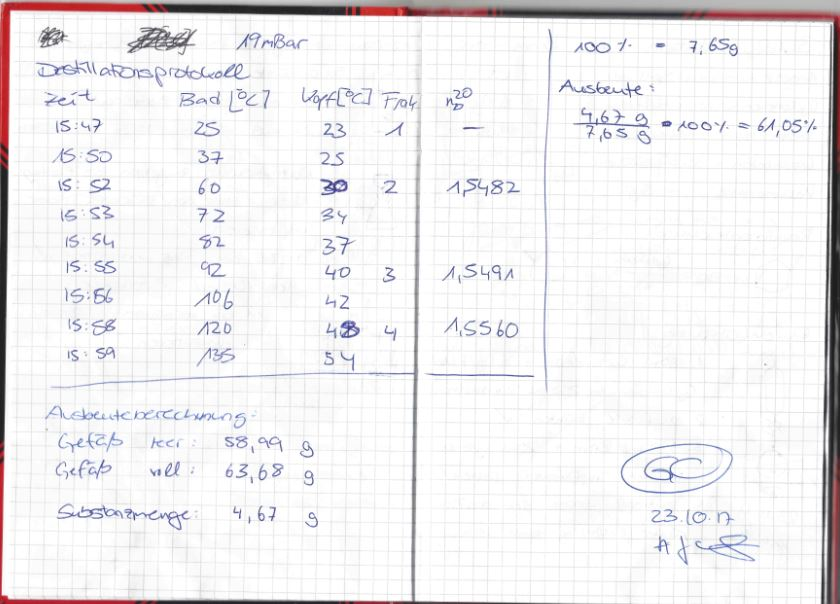 19 mBar
Destillationsprotokoll
Zeit Bad [°C] Kopf [°C] Frak n 20 D
15:47 25 23 1 —
15:50 37 25
15:52 60 30 2 1,5482
15:53 72 34
15:54 82 37
15:55 92 40 3 1,5491
15:56 106 42
15:58 120 48 4 1,5560
15:59 135 54
Ausbeuteberechnung:
Gefäß leer: 58,99 g
Gefäß voll: 63,68 g
Substanzmenge: 4,67 g
100 % = 7,65g
Ausbeute:
4,67 g
7,65 g • 100% = 61,05%
GC
23.10.17